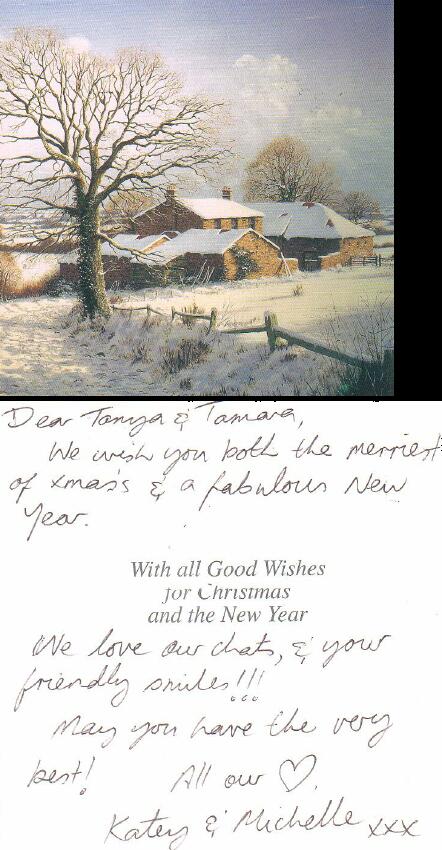 Dear Tanya & Tamara,
We wish you both the merriest
of xmas's & a fabulous New
Year.
With all Good Wishes
for Christmas
and the New Year
We love our chats, & your
friendly smiles!!!
May you have the very
best! All our ♡.
Katey & Michelle xxx